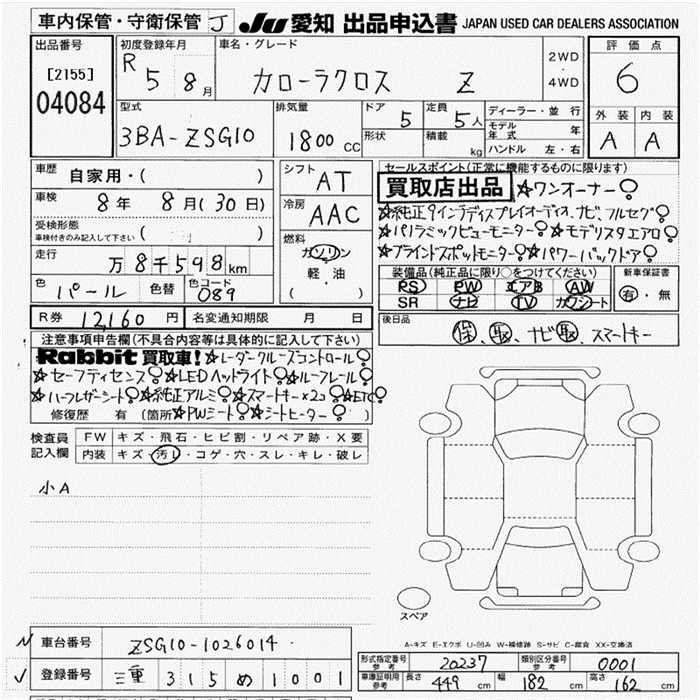 車内保管・守衛保管 J JU 愛知 出品申込書 JAPAN USED CAR DEALERS ASSOCIATION
出品番号
[2155]
04084
初度登録年月 R 5 8月
車名・グレード カローラクロス Z
2WD・4WD
評価点
6
外装 内装
A A
型式 3BA-ZSG10
排気量 1800 CC
ドア 5
形状
定員 5人
積載 kg
ディーラー・並行
モデル年式 年
ハンドル 左・右
車歴 自家用・( )
車検 8年 8月(30日)
受検形態
車検付きのみ記入して下さい ( )
走行 万8千598km
色 パール 色替 色コード 089
シフト AT
冷房 AAC
燃料
ガソリン
軽・油
( )
R券 12,160円 名変通知期限 月 日
セールスポイント(正常に機能するものに限ります)
買取店出品 ☆ワンオーナー
☆純正9インチディスプレイオーディオ、ナビ、フルセグ
☆パノラミックビューモニター ☆モデリスタエアロ
☆ブラインドスポットモニター ☆パワーバックドア
装備品(純正品に限り○をつけてください)
PS PW エアB AW
SR ナビ TV カワシート
新車保証書
有・無
後日品
保、取、ナビ取、スマートキー
注意事項申告欄(不具合内容等は具体的に記入して下さい)
Rabbit 買取車! ☆レーダークルーズコントロール
☆セーフティセンス ☆LEDヘッドライト ☆ルーフレール
☆ハーフレザーシート ☆純正アルミ ☆スマートキー×2コ ☆ETC
修復歴 有 (箇所 ☆PWシート ☆シートヒーター )
検査員記入欄
FW キズ・飛石・ヒビ割・リペア跡・X要
内装 キズ・汚レ・コゲ・穴・スレ・キレ・破レ
小A
スペア
A-キズ E-エクボ U-凹み W-補修跡 S-サビ C-腐食 XX-交換済
車台番号 ZSG10-1026014
登録番号 三重 315 め 1001
形式指定番号 参考 20237 類別区分番号 参考 0001
車庫証明用 参考 長さ 449cm 幅 182cm 高さ 162cm